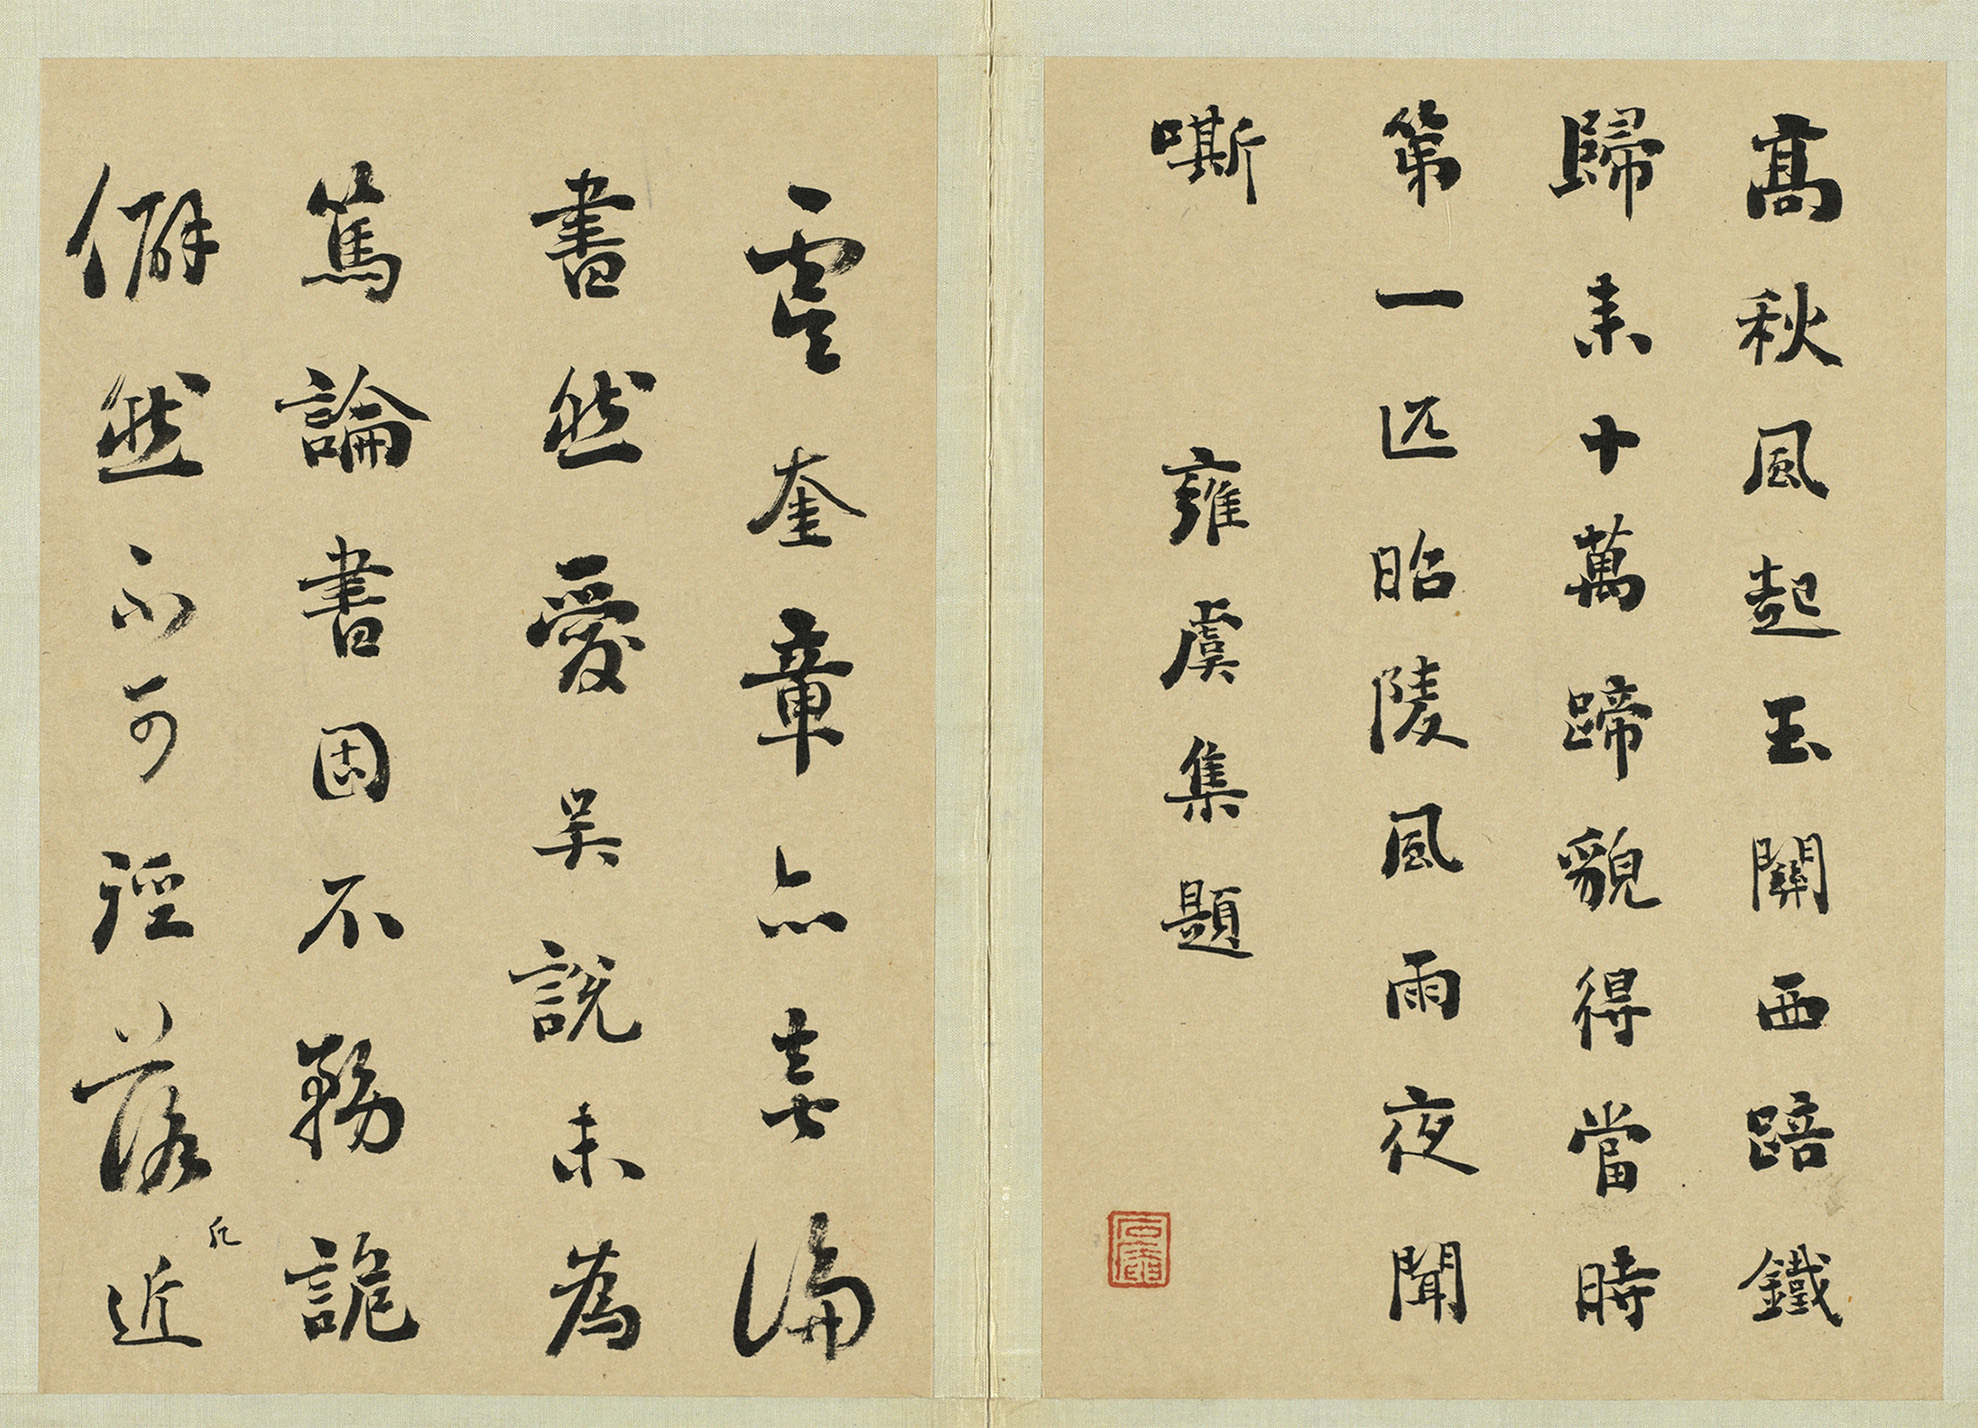 高秋風起玉關西踣鐵
歸来十萬蹄貌得當時
第一匹昭陵風雨夜聞
嘶　雍虞集題
石庵
虞奎章亦喜論
書然愛吳說未為
篤論書固不務詭
僻然不可徑落凡近